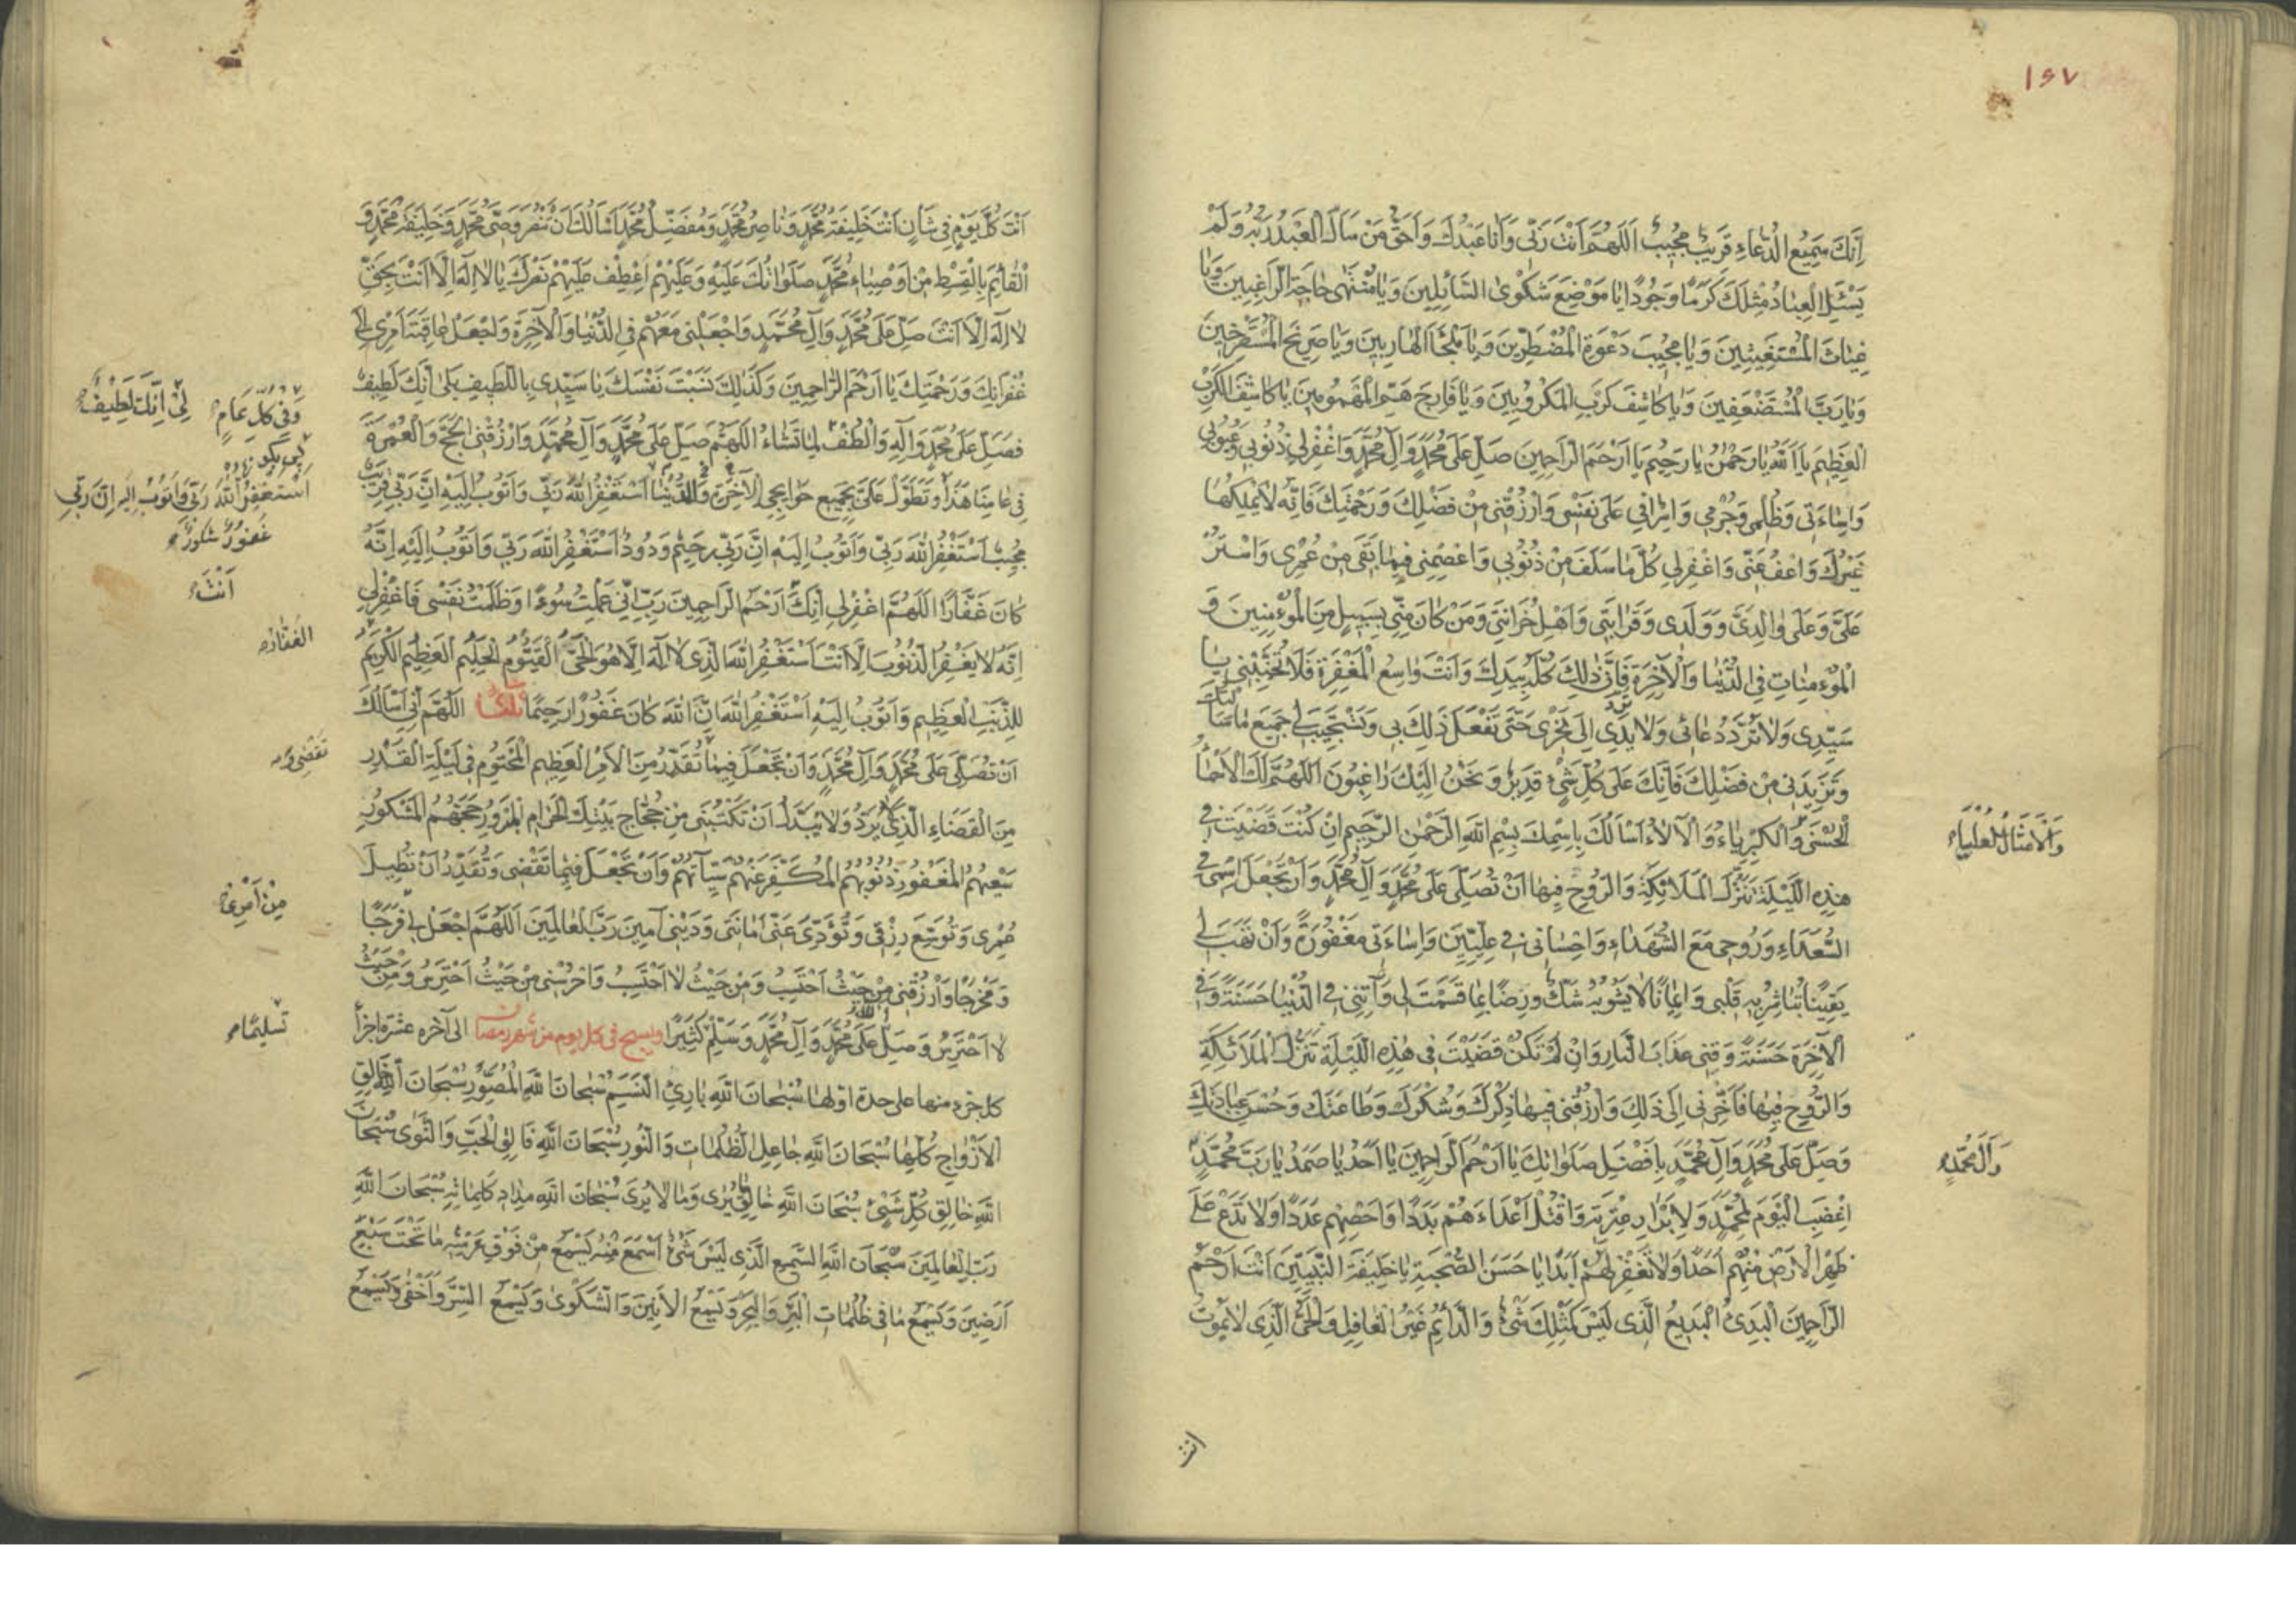 ١٤٧
اِنَّكَ سَمِيعُ الدُّعَاءِ قَرِيبٌ مُجِيبٌ اَللّٰهُمَّ اَنْتَ رَبِّي وَاَنَا عَبْدُكَ وَاَحَقُّ مَنْ سَاَلَ الْعَبْدُ رَبَّهُ وَلَمْ
يَسْئَلِ الْعِبَادُ مِثْلَكَ كَرَمًا وَجُودًا يَا مَوْضِعَ شَكْوَى السَّائِلِينَ وَيَا مُنْتَهَى حَاجَةِ الرَّاغِبِينَ وَيَا
غِيَاثَ الْمُسْتَغِيثِينَ وَيَا مُجِيبَ دَعْوَةِ الْمُضْطَرِّينَ وَيَا مَلْجَأَ الْهَارِبِينَ وَيَا صَرِيخَ الْمُسْتَصْرِخِينَ
وَيَا رَبَّ الْمُسْتَضْعَفِينَ وَيَا كَاشِفَ كَرْبِ الْمَكْرُوبِينَ وَيَا فَارِجَ هَمِّ الْمَهْمُومِينَ يَا كَاشِفَ الْكَرْبِ
الْعَظِيمِ يَا اَللّٰهُ يَا رَحْمٰنُ يَا رَحِيمُ يَا اَرْحَمَ الرَّاحِمِينَ صَلِّ عَلَى مُحَمَّدٍ وَآلِ مُحَمَّدٍ وَاغْفِرْ لِي ذُنُوبِي وَعُيُوبِي
وَاِسَاءَتِي وَظُلْمِي وَجُرْمِي وَاِسْرَافِي عَلَى نَفْسِي وَارْزُقْنِي مِنْ فَضْلِكَ وَرَحْمَتِكَ فَاِنَّهُ لَا يَمْلِكُهَا
غَيْرُكَ وَاعْفُ عَنِّي وَاغْفِرْ لِي كُلَّ مَا سَلَفَ مِنْ ذُنُوبِي وَاعْصِمْنِي فِيمَا بَقِيَ مِنْ عُمْرِي وَاسْتُرْ
عَلَيَّ وَعَلَى وَالِدَيَّ وَوَلَدِي وَقَرَابَتِي وَاَهْلِ حُزَانَتِي وَمَنْ كَانَ مِنِّي بِسَبِيلٍ مِنَ الْمُؤْمِنِينَ وَ
الْمُؤْمِنَاتِ فِي الدُّنْيَا وَالْآخِرَةِ فَاِنَّ ذٰلِكَ كُلَّهُ بِيَدِكَ وَاَنْتَ وَاسِعُ الْمَغْفِرَةِ فَلَا تُخَيِّبْنِي يَا
سَيِّدِي وَلَا تَرُدَّ دُعَائِي وَلَا يَدِي اِلَى نَحْرِي حَتَّى تَفْعَلَ ذٰلِكَ بِي وَتَسْتَجِيبَ لِي جَمِيعَ مَا سَاَلْتُكَ
وَتَزِيدَنِي مِنْ فَضْلِكَ فَاِنَّكَ عَلَى كُلِّ شَيْءٍ قَدِيرٌ وَنَحْنُ اِلَيْكَ رَاغِبُونَ اَللّٰهُمَّ لَكَ الْاَسْمَاءُ
الْحُسْنَى وَالْكِبْرِيَاءُ وَالْآلَاءُ اَسْاَلُكَ بِاسْمِكَ بِسْمِ اللهِ الرَّحْمٰنِ الرَّحِيمِ اِنْ كُنْتَ قَضَيْتَ فِي
وَالْاَمْثَالُ الْعُلْيَا
هٰذِهِ اللَّيْلَةِ تَنَزُّلَ الْمَلَائِكَةِ وَالرُّوحِ فِيهَا اَنْ تُصَلِّيَ عَلَى مُحَمَّدٍ وَآلِ مُحَمَّدٍ وَاَنْ تَجْعَلَ اسْمِي فِي
السُّعَدَاءِ وَرُوحِي مَعَ الشُّهَدَاءِ وَاِحْسَانِي فِي عِلِّيِّينَ وَاِسَاءَتِي مَغْفُورَةً وَاَنْ تَهَبَ لِي
يَقِينًا تُبَاشِرُ بِهِ قَلْبِي وَاِيمَانًا لَا يَشُوبُهُ شَكٌّ وَرِضًا بِمَا قَسَمْتَ لِي وَآتِنِي فِي الدُّنْيَا حَسَنَةً وَفِي
الْآخِرَةِ حَسَنَةً وَقِنِي عَذَابَ النَّارِ وَاِنْ لَمْ تَكُنْ قَضَيْتَ فِي هٰذِهِ اللَّيْلَةِ تَنَزُّلَ الْمَلَائِكَةِ
وَالرُّوحِ فِيهَا فَاَخِّرْنِي اِلَى ذٰلِكَ وَارْزُقْنِي فِيهَا ذِكْرَكَ وَشُكْرَكَ وَطَاعَتَكَ وَحُسْنَ عِبَادَتِكَ
وَصَلِّ عَلَى مُحَمَّدٍ وَآلِ مُحَمَّدٍ بِاَفْضَلِ صَلَوَاتِكَ يَا اَرْحَمَ الرَّاحِمِينَ يَا اَحَدُ يَا صَمَدُ يَا رَبَّ مُحَمَّدٍ
وَآلِ مُحَمَّدٍ
اِغْضَبِ الْيَوْمَ لِمُحَمَّدٍ وَلِاَبْرَارِ عِتْرَتِهِ وَاقْتُلْ اَعْدَاءَهُمْ بَدَدًا وَاَحْصِهِمْ عَدَدًا وَلَا تَدَعْ عَلَى
ظَهْرِ الْاَرْضِ مِنْهُمْ اَحَدًا وَلَا تَغْفِرْ لَهُمْ اَبَدًا يَا حَسَنَ الصُّحْبَةِ يَا خَلِيفَةَ النَّبِيِّينَ اَنْتَ اَرْحَمُ
الرَّاحِمِينَ الْبَدِيءُ الْبَدِيعُ الَّذِي لَيْسَ كَمِثْلِكَ شَيْءٌ وَالدَّائِمُ غَيْرُ الْغَافِلِ وَالْحَيُّ الَّذِي لَا يَمُوتُ
انت
اَنْتَ كُلَّ يَوْمٍ فِي شَاْنٍ اَنْتَ خَلِيفَةُ مُحَمَّدٍ وَنَاصِرُ مُحَمَّدٍ وَمُفَضِّلُ مُحَمَّدٍ اَسْاَلُكَ اَنْ تَنْصُرَ وَصِيَّ مُحَمَّدٍ وَخَلِيفَةَ مُحَمَّدٍ وَ
الْقَائِمَ بِالْقِسْطِ مِنْ اَوْصِيَاءِ مُحَمَّدٍ صَلَوَاتُكَ عَلَيْهِ وَعَلَيْهِمْ اِعْطِفْ عَلَيْهِمْ نَصْرَكَ يَا لَا اِلٰهَ اِلَّا اَنْتَ بِحَقِّ
لَا اِلٰهَ اِلَّا اَنْتَ صَلِّ عَلَى مُحَمَّدٍ وَآلِ مُحَمَّدٍ وَاجْعَلْنِي مَعَهُمْ فِي الدُّنْيَا وَالْآخِرَةِ وَاجْعَلْ عَاقِبَةَ اَمْرِي اِلَى
غُفْرَانِكَ وَرَحْمَتِكَ يَا اَرْحَمَ الرَّاحِمِينَ وَكَذٰلِكَ نَسَبْتَ نَفْسَكَ يَا سَيِّدِي بِاللَّطِيفِ بَلَى اِنَّكَ لَطِيفٌ
فَصَلِّ عَلَى مُحَمَّدٍ وَآلِهِ وَالْطُفْ لِمَا تَشَاءُ اَللّٰهُمَّ صَلِّ عَلَى مُحَمَّدٍ وَآلِ مُحَمَّدٍ وَارْزُقْنِي الْحَجَّ وَالْعُمْرَةَ
وَفِي كُلِّ عَامٍ
لِي اِنَّكَ لَطِيفٌ
فِي عَامِنَا هٰذَا وَتَطَوَّلْ عَلَيَّ بِجَمِيعِ حَوَائِجِي لِلْآخِرَةِ وَالدُّنْيَا اَسْتَغْفِرُ اللهَ رَبِّي وَاَتُوبُ اِلَيْهِ اِنَّ رَبِّي قَرِيبٌ
اَسْتَغْفِرُ اللهَ رَبِّي وَاَتُوبُ اِلَيْهِ اِنَّ رَبِّي
غَفُورٌ شَكُورٌ
مُجِيبٌ اَسْتَغْفِرُ اللهَ رَبِّي وَاَتُوبُ اِلَيْهِ اِنَّ رَبِّي رَحِيمٌ وَدُودٌ اَسْتَغْفِرُ اللهَ رَبِّي وَاَتُوبُ اِلَيْهِ اِنَّهُ
كَانَ غَفَّارًا اَللّٰهُمَّ اغْفِرْ لِي اِنَّكَ اَرْحَمُ الرَّاحِمِينَ رَبِّ اِنِّي عَمِلْتُ سُوءًا وَظَلَمْتُ نَفْسِي فَاغْفِرْ لِي
اَنْتَ
اِنَّهُ لَا يَغْفِرُ الذُّنُوبَ اِلَّا اَنْتَ اَسْتَغْفِرُ اللهَ الَّذِي لَا اِلٰهَ اِلَّا هُوَ الْحَيُّ الْقَيُّومُ الْحَلِيمُ الْعَظِيمُ الْكَرِيمُ
الْغَفَّارُ
لِلذَّنْبِ الْعَظِيمِ وَاَتُوبُ اِلَيْهِ اَسْتَغْفِرُ اللهَ اِنَّ اللهَ كَانَ غَفُورًا رَحِيمًا ثلثا اَللّٰهُمَّ اِنِّي اَسْاَلُكَ
اَنْ تُصَلِّيَ عَلَى مُحَمَّدٍ وَآلِ مُحَمَّدٍ وَاَنْ تَجْعَلَ فِيمَا تُقَدِّرُ مِنَ الْاَمْرِ الْعَظِيمِ الْمَحْتُومِ فِي لَيْلَةِ الْقَدْرِ
تَقْضِي وَ
مِنَ الْقَضَاءِ الَّذِي لَا يُرَدُّ وَلَا يُبَدَّلُ اَنْ تَكْتُبَنِي مِنْ حُجَّاجِ بَيْتِكَ الْحَرَامِ الْمَبْرُورِ حَجُّهُمُ الْمَشْكُورِ
سَعْيُهُمُ الْمَغْفُورِ ذُنُوبُهُمُ الْمُكَفَّرِ عَنْهُمْ سَيِّئَاتُهُمْ وَاَنْ تَجْعَلَ فِيمَا تَقْضِي وَتُقَدِّرُ اَنْ تُطِيلَ
عُمْرِي وَتُوَسِّعَ رِزْقِي وَتُؤَدِّيَ عَنِّي اَمَانَتِي وَدَيْنِي آمِينَ رَبَّ الْعَالَمِينَ اَللّٰهُمَّ اجْعَلْ لِي فَرَجًا
مِنْ اَمْرِي
وَمَخْرَجًا وَارْزُقْنِي مِنْ حَيْثُ اَحْتَسِبُ وَمِنْ حَيْثُ لَا اَحْتَسِبُ وَاحْرُسْنِي مِنْ حَيْثُ اَحْتَرِسُ وَمِنْ حَيْثُ
لَا اَحْتَرِسُ وَصَلِّ عَلَى مُحَمَّدٍ وَآلِ مُحَمَّدٍ وَسَلِّمْ كَثِيرًا ويسبح في كل يوم من شهر رمضان الى آخره عشرة اجزأ
تَسْلِيمًا
كل جزء منها على حدة اولها سُبْحَانَ اللهِ بَارِئِ النَّسَمِ سُبْحَانَ اللهِ الْمُصَوِّرِ سُبْحَانَ اللهِ خَالِقِ
الْاَزْوَاجِ كُلِّهَا سُبْحَانَ اللهِ جَاعِلِ الظُّلُمَاتِ وَالنُّورِ سُبْحَانَ اللهِ فَالِقِ الْحَبِّ وَالنَّوَى سُبْحَانَ
اللهِ خَالِقِ كُلِّ شَيْءٍ سُبْحَانَ اللهِ خَالِقِ مَا يُرَى وَمَا لَا يُرَى سُبْحَانَ اللهِ مِدَادَ كَلِمَاتِهِ سُبْحَانَ اللهِ
رَبِّ الْعَالَمِينَ سُبْحَانَ اللهِ السَّمِيعِ الَّذِي لَيْسَ شَيْءٌ اَسْمَعَ مِنْهُ يَسْمَعُ مِنْ فَوْقِ عَرْشِهِ مَا تَحْتَ سَبْعِ
اَرَضِينَ وَيَسْمَعُ مَا فِي ظُلُمَاتِ الْبَرِّ وَالْبَحْرِ وَيَسْمَعُ الْاَنِينَ وَالشَّكْوَى وَيَسْمَعُ السِّرَّ وَاَخْفَى وَيَسْمَعُ